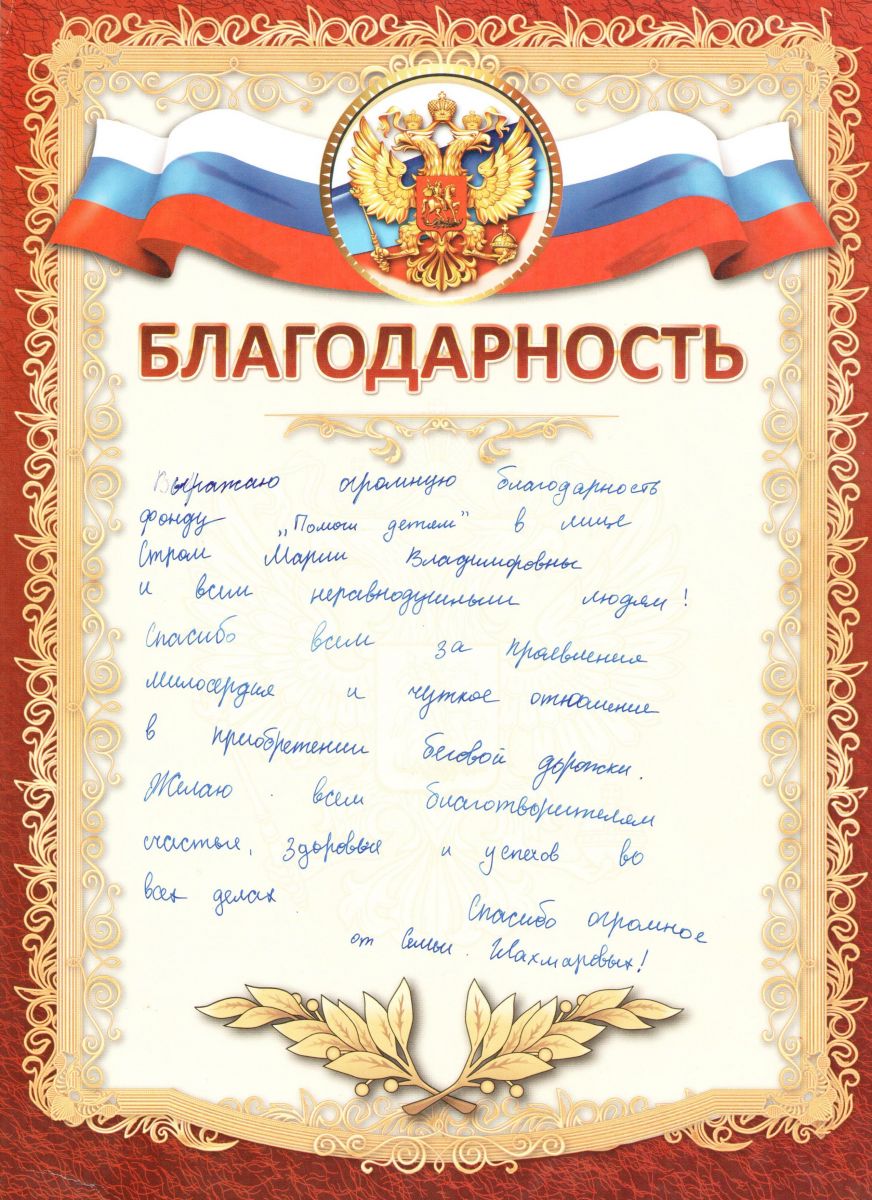 БЛАГОДАРНОСТЬ
Выражаю огромную благодарность
фонду „Помоги детям" в лице
Стром Марии Владимировны
и всем неравнодушным людям!
Спасибо всем за проявления
милосердия и чуткое отношение
в приобретении беговой дорожки.
Желаю всем благотворителям
счастья, здоровья и успехов во
всех делах
Спасибо огромное
от Семьи Шахмаровых!